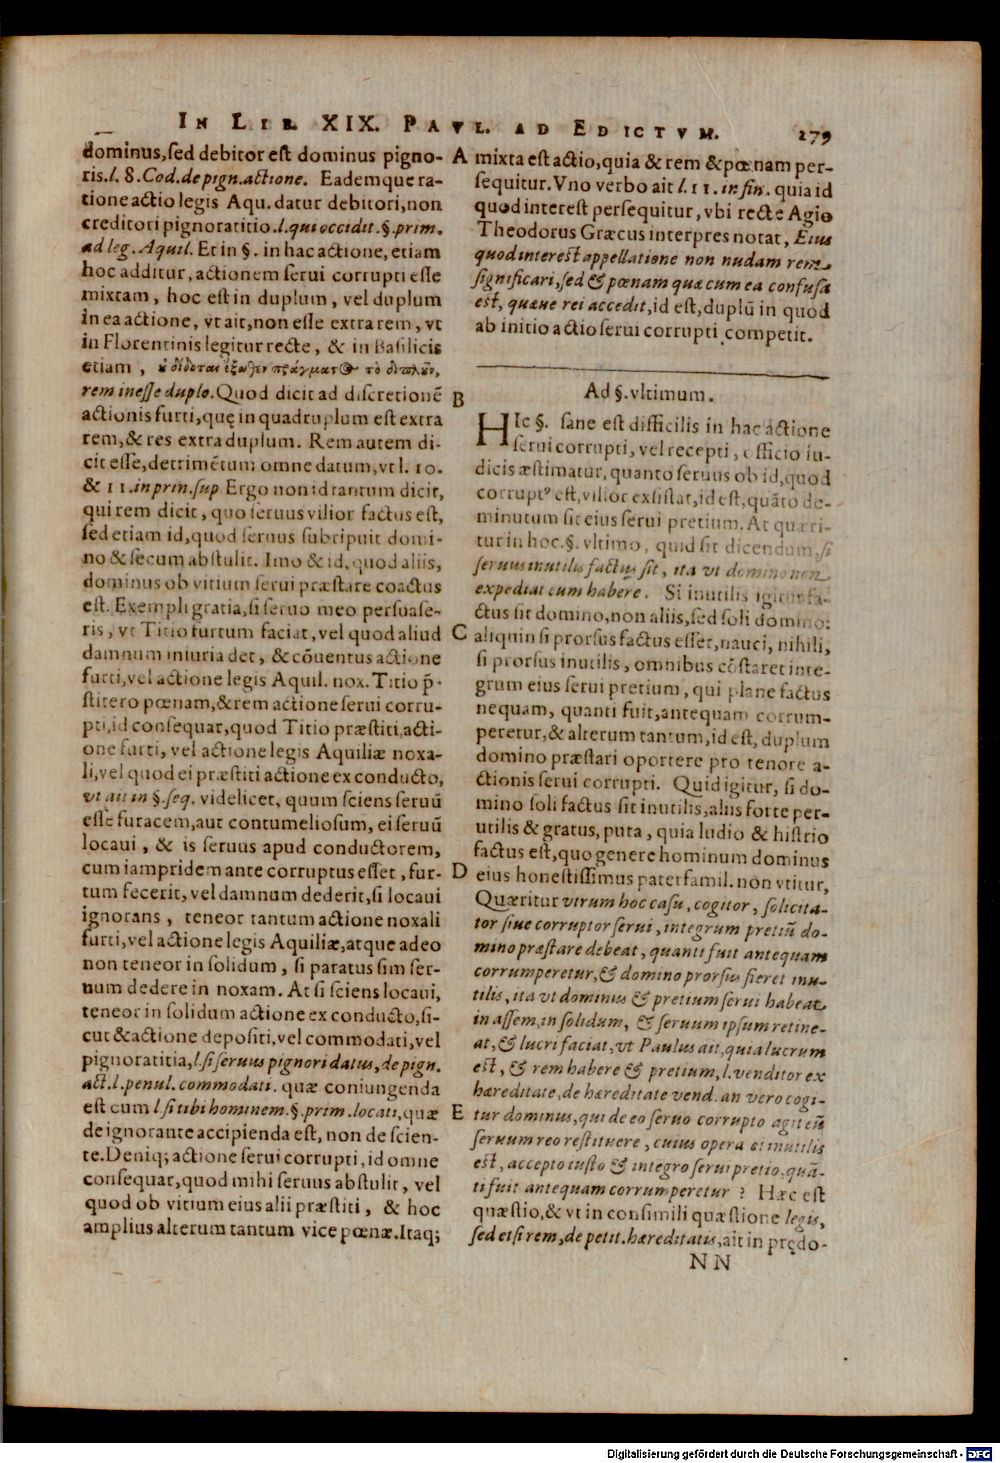 IN LIB. XIX. PAVL. AD EDICTVM. 279
dominus, sed debitor est dominus pigno-
ris. l. 8. Cod. de pign. actione. Eademque ra-
tione actio legis Aqu. datur debitori, non
creditori pignoratitio. l. qui occidit. §. prim.
ad leg. Aquil. Et in §. in hac actione, etiam
hoc additur, actionem serui corrupti esse
mixtam, hoc est in duplum, vel duplum
in ea actione, vt ait, non esse extra rem, vt
in Florentinis legitur recte, & in Basilicis
etiam, ὀ δίδοται ἔξωθεν πράγματος τὸ διπλοῦν,
rem inesse duplo. Quod dicit ad discretionē
actionis furti, quę in quadruplum est extra
rem, & res extra duplum. Rem autem di-
cit esse, detrimētum omne datum, vt l. 10.
& 11. in prin. sup Ergo non id tantum dicit,
qui rem dicit, quo seruus vilior factus est,
sed etiam id, quod seruus subripuit domi-
no & secum abstulit. Imo & id, quod aliis,
dominus ob vitium serui præstare coactus
est. Exempli gratia, si seruo meo persuase-
ris, vt Titio furtum faciat, vel quod aliud
damnum iniuria det, & cōuentus actione
furti, vel actione legis Aquil. nox. Titio p̄-
stitero pœnam, & rem actione serui corru-
pti, id consequar, quod Titio præstiti, acti-
one furti, vel actione legis Aquiliæ noxa-
li, vel quod ei præstiti actione ex conducto,
vt ait in §. seq. videlicet, quum sciens seruū
esse furacem, aut contumeliosum, ei seruū
locaui, & is seruus apud conductorem,
cum iampridem ante corruptus esset, fur-
tum fecerit, vel damnum dederit, si locaui
ignorans, teneor tantum actione noxali
furti, vel actione legis Aquiliæ, atque adeo
non teneor in solidum, si paratus sim ser-
uum dedere in noxam. At si sciens locaui,
teneor in solidum actione ex conducto, si-
cut & actione depositi, vel commodati, vel
pignoratitia, l. si seruus pignori datus, de pign.
act. l. penul. commodati. quæ coniungenda
est cum l. si tibi hominem. §. prim. locati, quæ
de ignorante accipienda est, non de scien-
te. Deniq; actione serui corrupti, id omne
consequar, quod mihi seruus abstulit, vel
quod ob vitium eius alii præstiti, & hoc
amplius alterum tantum vice pœnæ. Itaq;
A mixta est actio, quia & rem & pœnam per-
sequitur. Vno verbo ait l. 11. in fin. quia id
quod interest persequitur, vbi recte Agio
Theodorus Græcus interpres notat, Eius
quod interest appellatione non nudam rem
significari, sed & pœnam quæ cum ea confusa
est, quæue rei accedit, id est, duplū in quod
ab initio actio serui corrupti competit.
Ad §. vltimum.
B
HIc §. sane est difficilis in hac actione
serui corrupti, vel recepti, officio iu-
dicis æstimatur, quanto seruus ob id, quod
corruptꝰ est, vilior exsistat, id est, quāto de-
minutum sit eius serui pretium. At quæri-
tur in hoc. §. vltimo, quid sit dicendum, si
seruus inutilis factus sit, ita vt domino non
expediat eum habere. Si inutilis igitur fa-
ctus sit domino, non aliis, sed soli domino:
C aliquin si prorsus factus esset, nauci, nihili,
si prorsus inutilis, omnibus cōstaret inte-
grum eius serui pretium, qui plane factus
nequam, quanti fuit, antequam corrum-
peretur, & alterum tantum, id est, duplum
domino præstari oportere pro tenore a-
ctionis serui corrupti. Quid igitur, si do-
mino soli factus sit inutilis, aliis forte per-
utilis & gratus, puta, quia ludio & histrio
factus est, quo genere hominum dominus
D eius honestissimus paterfamil. non vtitur,
Quæritur vtrum hoc casu, cogitor, solicita-
tor siue corruptor serui, integrum pretiū do-
mino præstare debeat, quanti fuit antequam
corrumperetur, & domino prorsus fieret inu-
tilis, ita vt dominus & pretium serui habeat
in assem, in solidum, & seruum ipsum retine-
at, & lucri faciat, vt Paulus ait, quia lucrum
est, & rem habere & pretium, l. venditor ex
hæreditate, de hæreditate vend. an vero cogi-
E tur dominus, qui de eo seruo corrupto agit eū
seruum reo restituere, cuius opera ei inutilis
est, accepto iusto & integro serui pretio, quā-
ti fuit antequam corrumperetur? Hæc est
quæstio, & vt in consimili quæstione legis,
sed etsi rem, de petit. hæreditatis, ait in prędo-
NN
Digitalisierung gefördert durch die Deutsche Forschungsgemeinschaft - DFG